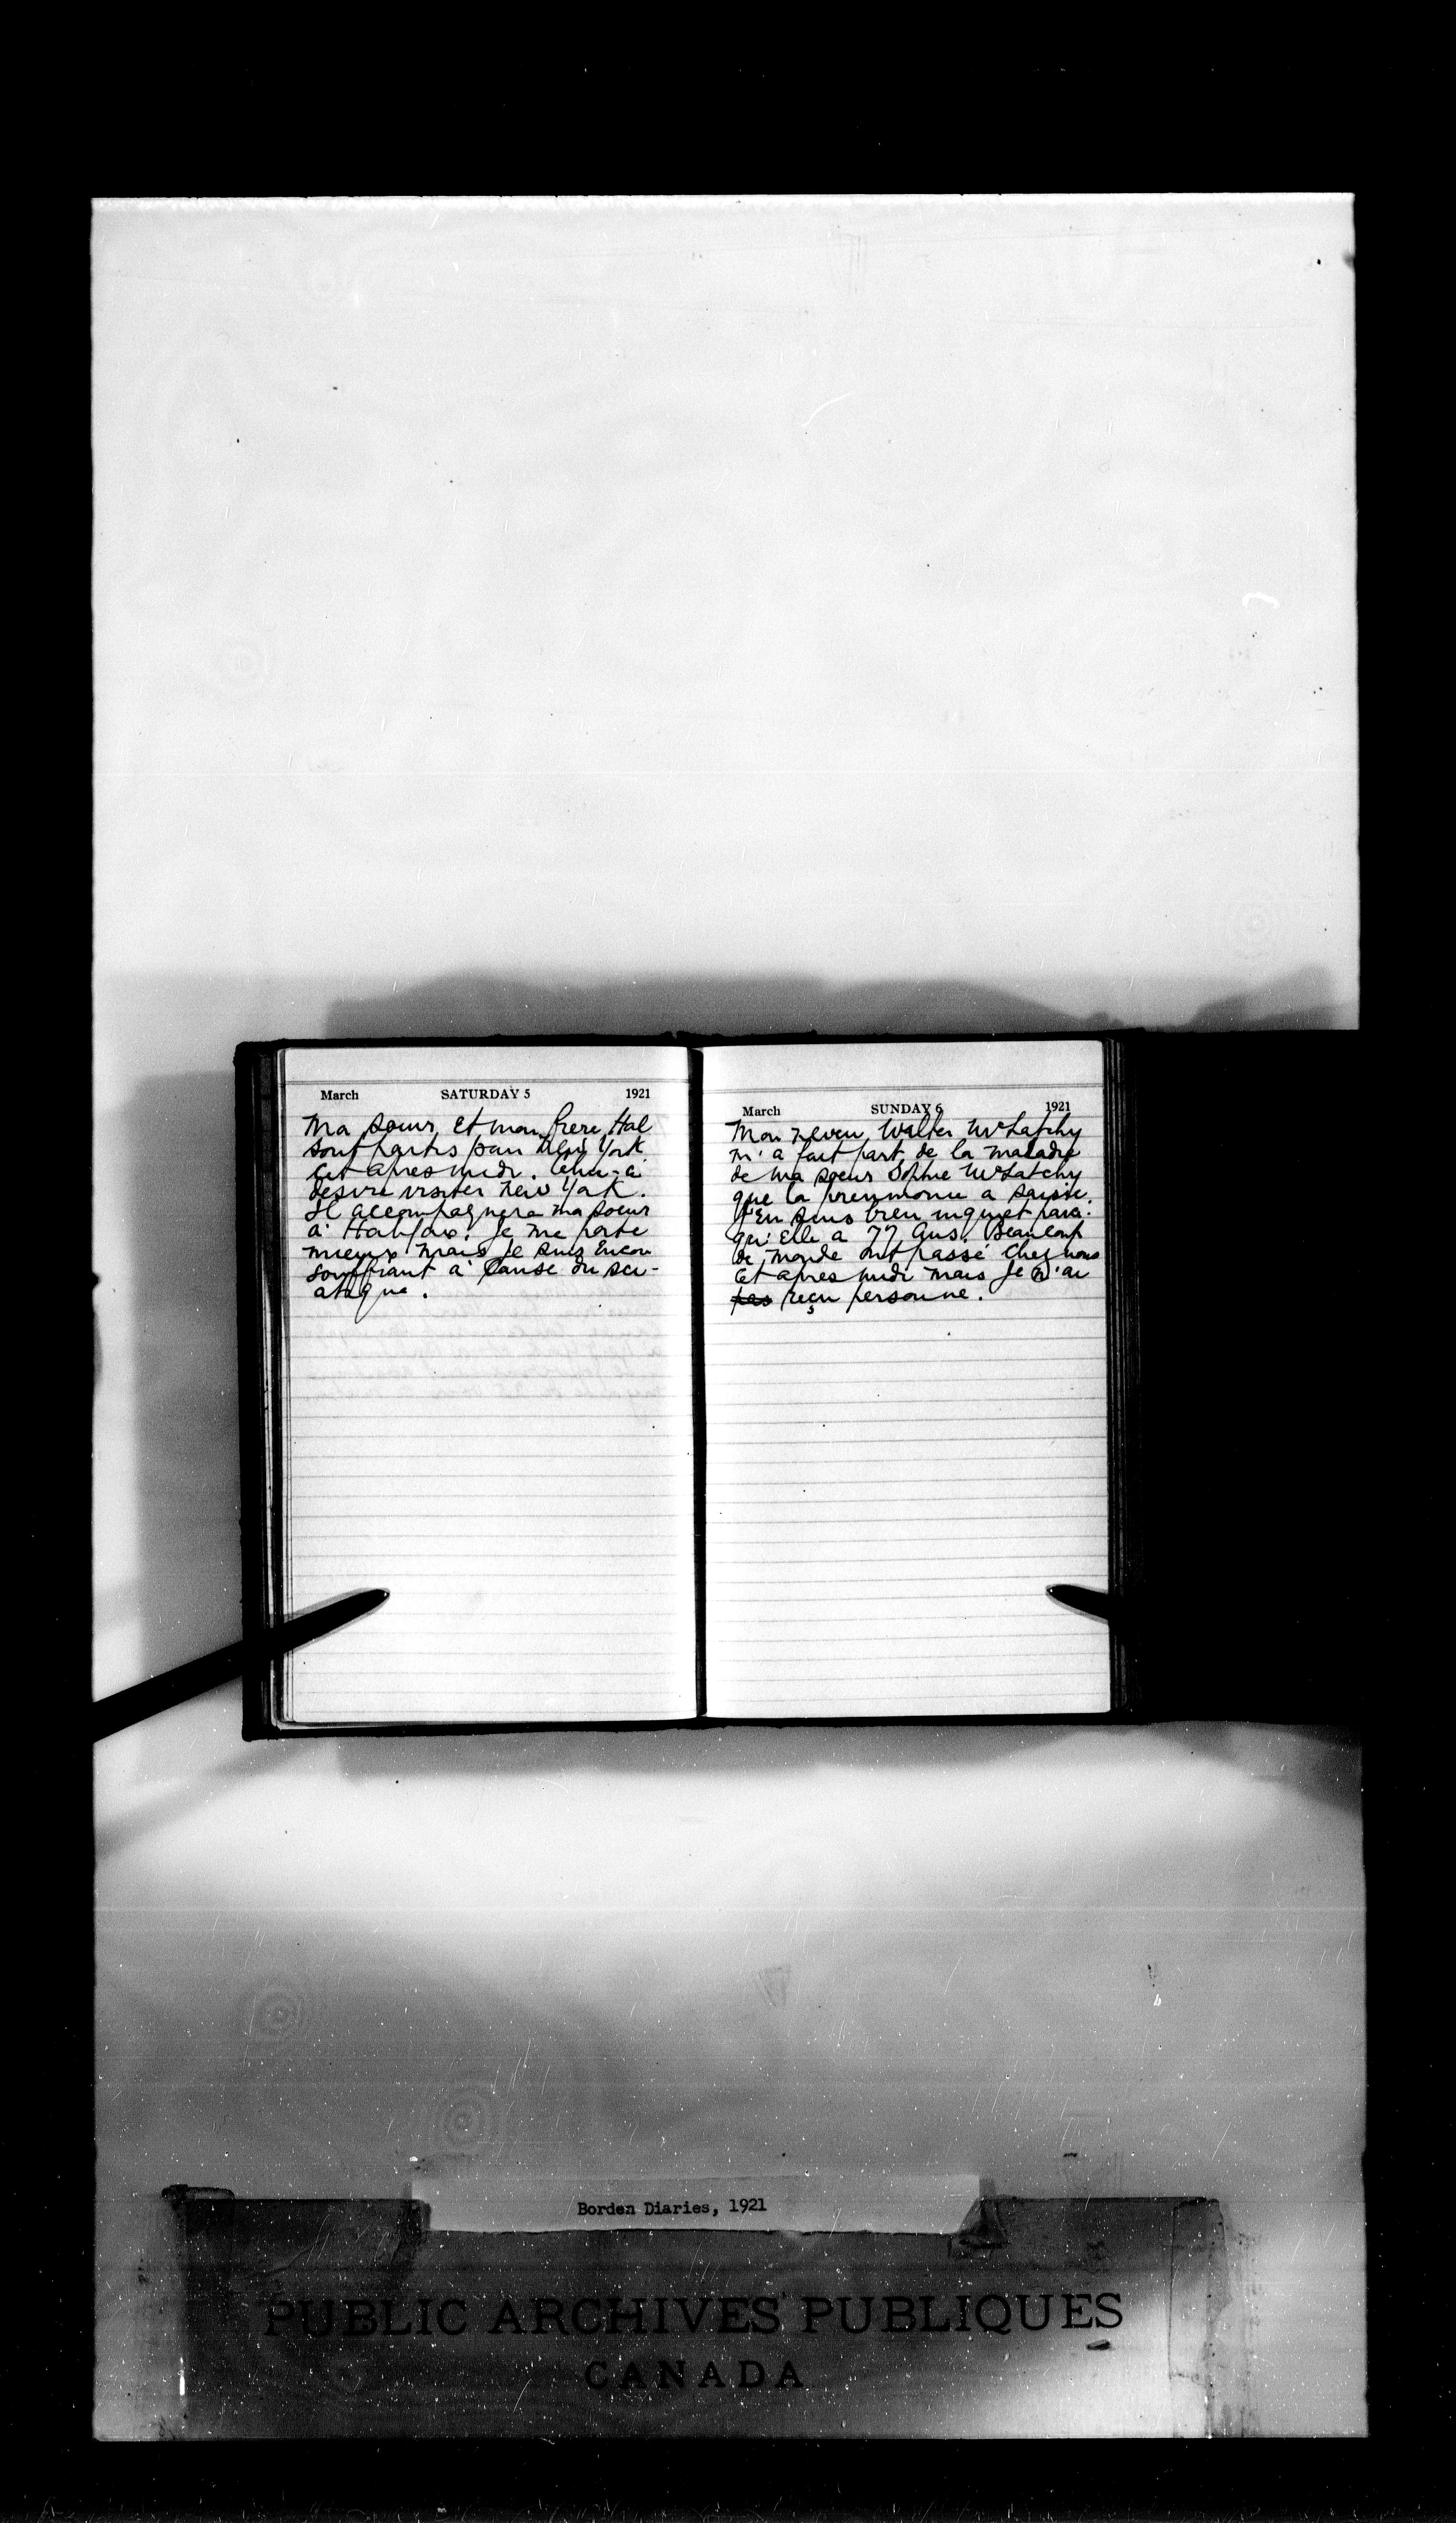 March SATURDAY 5 1921
Ma soeur et mon frere Hal
sont partis pour New York
cet apres midi. Celui-ci
desire visiter New York.
Il accompagnera ma soeur
à Halifax. Je me porte
mieux mais je suis encore
souffrant à cause du sci-
atique.
March SUNDAY 6 1921
Mon neveu Walter McLatchy
m'a fait part de la maladie
de ma soeur Sophie McLatchy
que la pneumonie a saisie.
J'en suis bien inquiet parce
qu'elle a 77 ans. Beaucoup
de monde ont passé chez nous
cet apres midi mais je n'ai
pas reçu personne.
Borden Diaries, 1921
PUBLIC ARCHIVES PUBLIQUES
CANADA